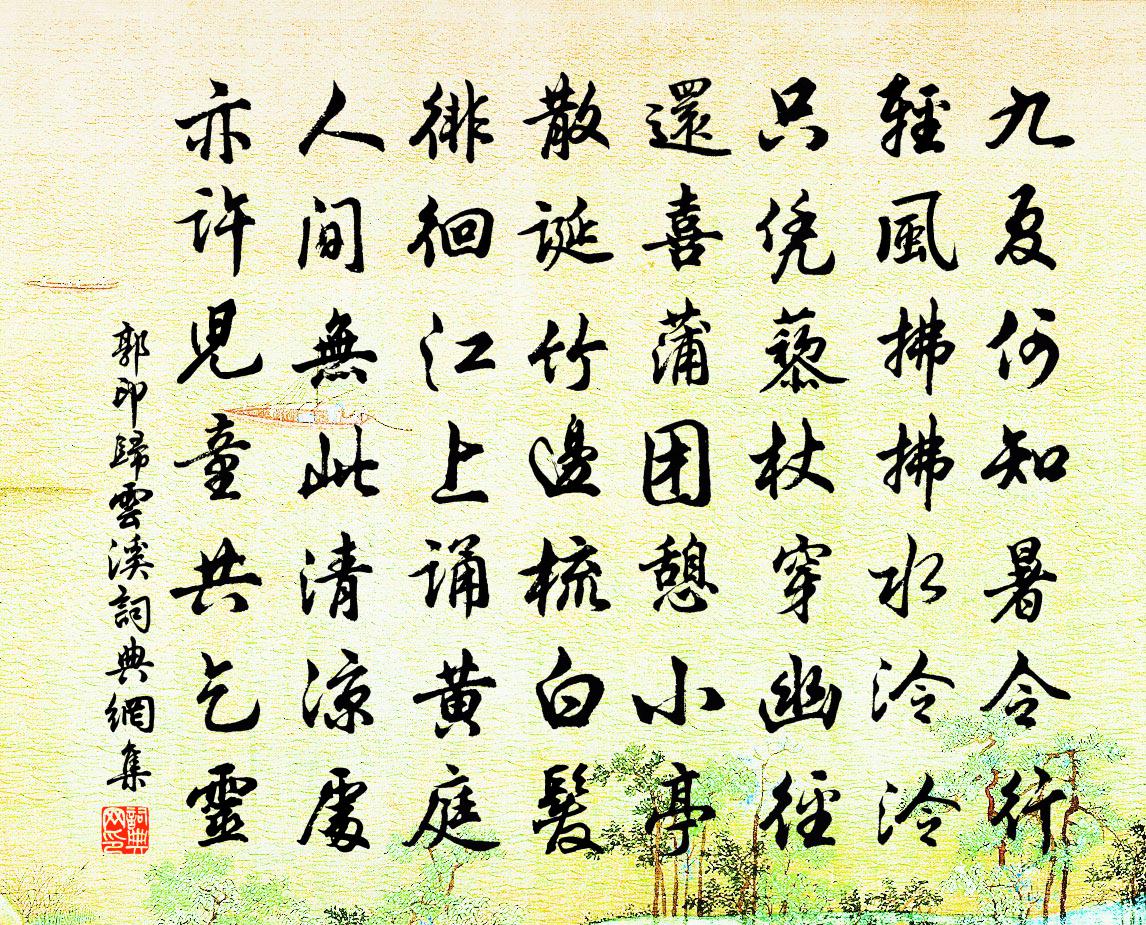 九夏何知暑令行
輕風拂拂水泠泠
只凭藜杖穿幽徑
還喜蒲团憩小亭
散誕竹邊梳白髮
徘徊江上誦黃庭
人間無此清涼處
亦許兒童共乞靈
郭印歸雲溪詞典網集
詞典
网印